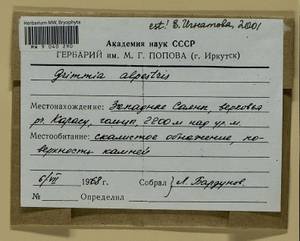 Herbarium MW, Bryophyta
MW 9 040 290
est! Е. Игнатова, 2001
Академия наук СССР
ГЕРБАРИЙ им. М. Г. ПОПОВА (г. Иркутск)
Grimmia alpestris
Местонахождение: Западные Саяны, верховья
р. Карасу, гольцы, 2200 м над ур. м.
Местообитание: скалистое обнажение, по-
верхность камней
6/VII 1968 г. Собрал Л. Бардунов
№ Определил